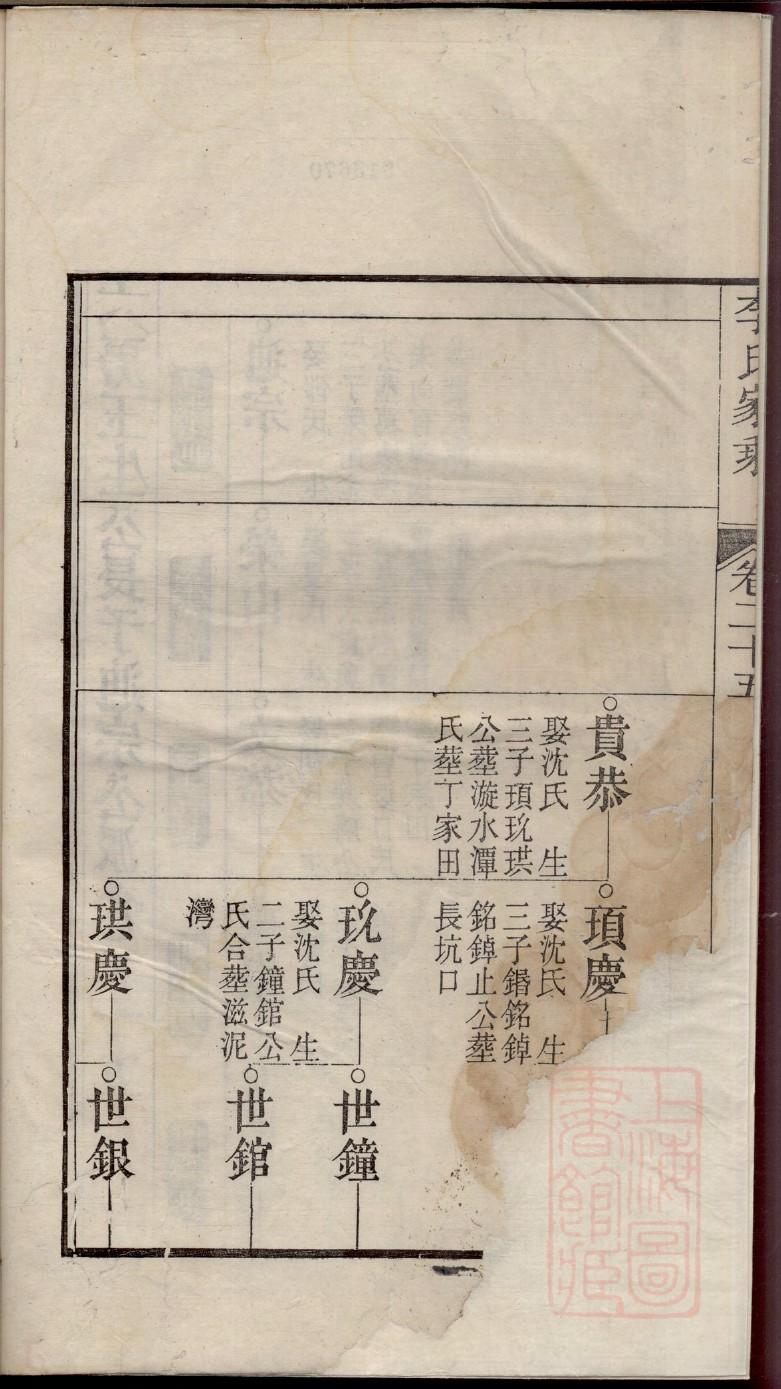 李氏家乘
卷二十五
貴恭
娶沈氏 生
三子頊玧珙
公塟漩水潭
氏塟丁家田
頊慶
娶沈氏 生
三子鐕銘鋽
銘鋽止公塟
長坑口
玧慶
娶沈氏 生
二子鐘錧公
氏合塟滋泥
灣
世鐘
世錧
珙慶
世銀
上海圖
書館藏